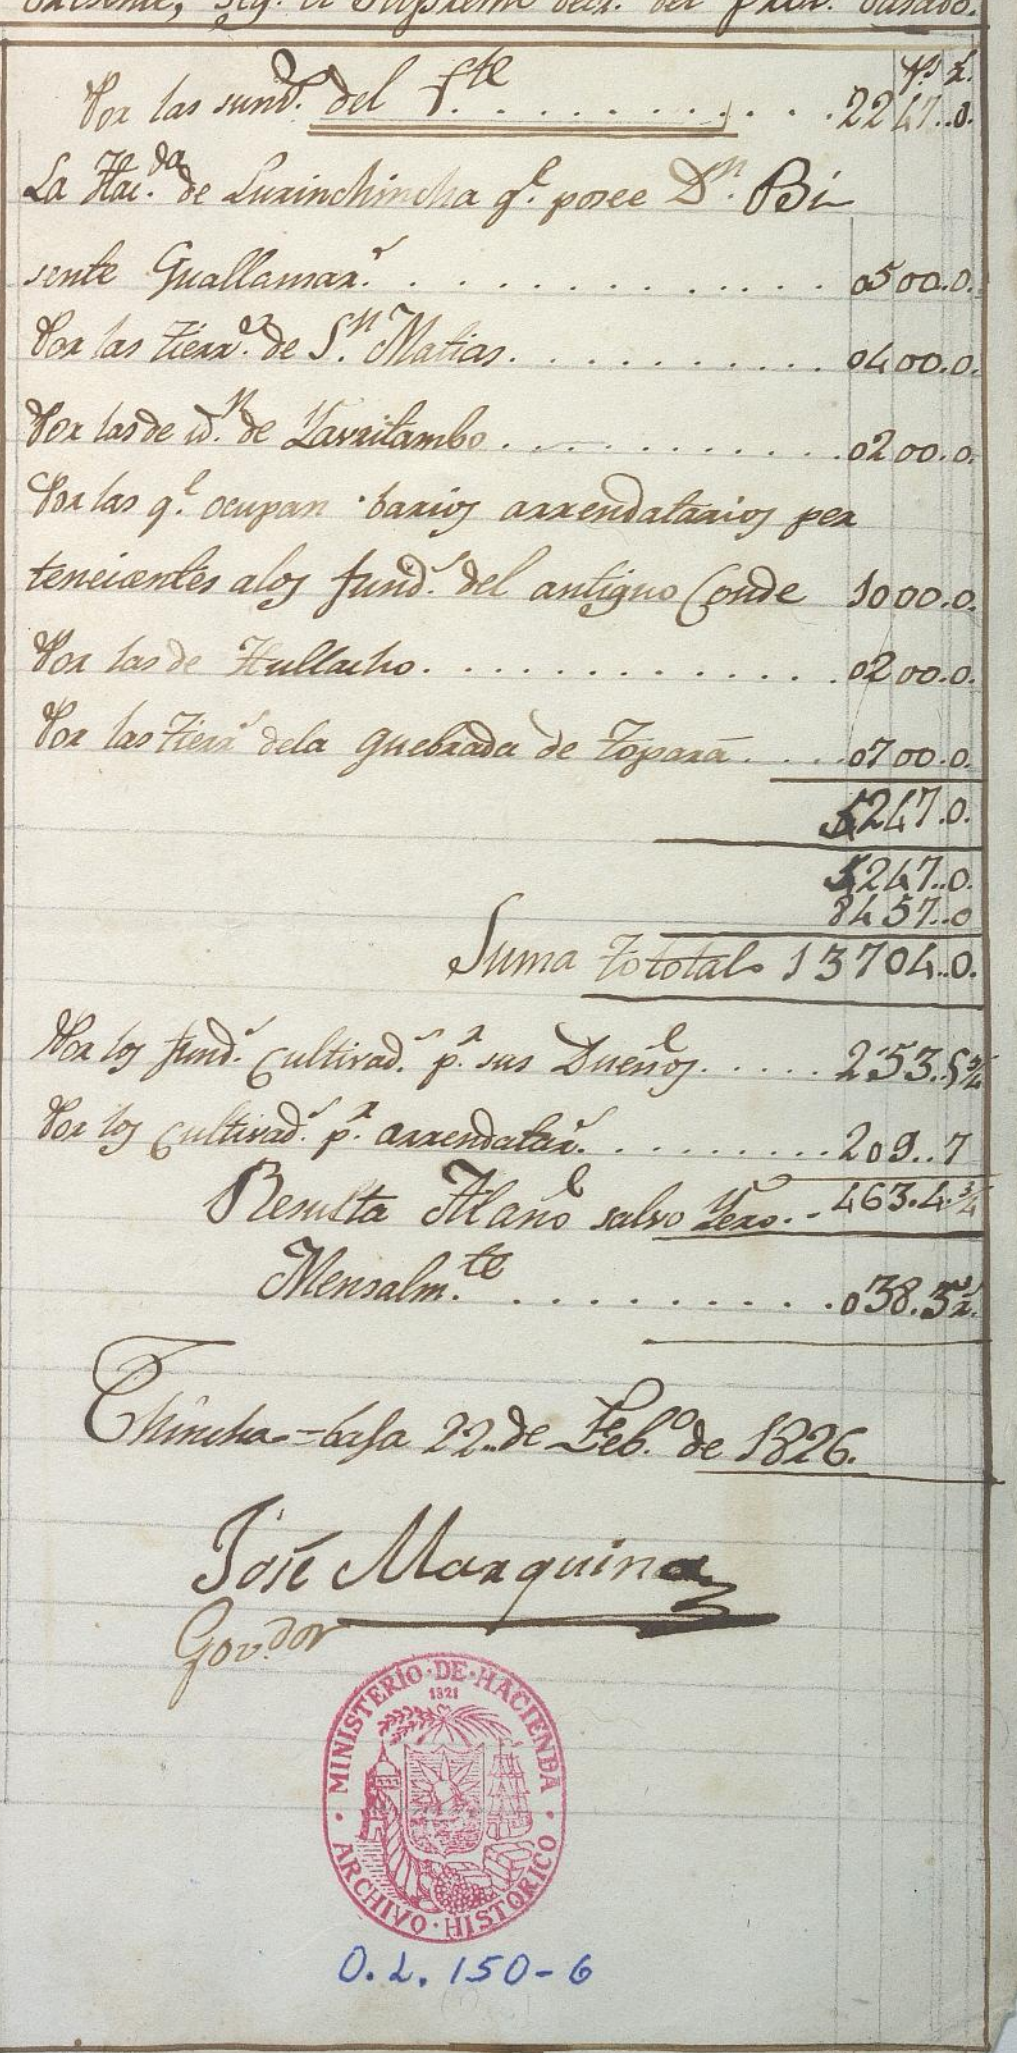 presente, seg. el Supremo decr. del pasado.
ps. r.
Por las sumd. del fte . . . . . . . . . . 2247..0.
La Hac.da de Lurinchincha q.e posee D.n Bi
sente Guallamar.s . . . . . . . . . . . . 0500.0.
Por las tierr.as de S.n Matias. . . . . . . . . . 0400.0.
Por las de id.n de Yavritambo . . . . . . . . . . 0200.0.
Por las q.e ocupan barios arrendatarios per
tenecientes alos fund.s del antiguo Conde 1000.0.
Por las de Hullacho. . . . . . . . . . . . . 0200.0.
Por las tierr.s dela quebrada de Topará . . . . 0700.0.
5247.0.
5247..0.
8457..0
Suma to total 13704..0.
Por los fund.s cultivad.s p.r sus Dueños. . . . . . 253..5 3/4
Por los cultivad.s p.r arrendatar.s . . . . . . . . . 209..7
Resulta Al año salvo Yerro. - 463.4. 3/4
Mensalm.te . . . . . . . . . . 038.5
Chincha=baja 22..de Feb.o de 1826.
José Marquina
Gov.dor
MINISTERIO·DE·HACIENDA
1821
ARCHIVO·HISTORICO
O.L. 150-6